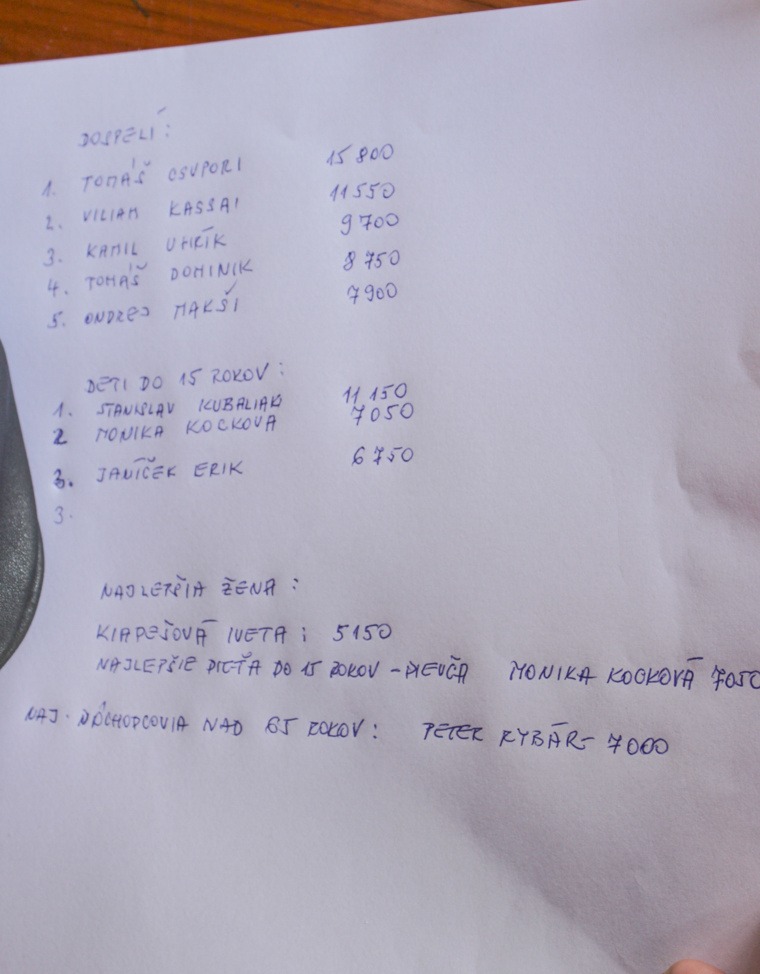 DOSPELÍ:
1. TOMÁŠ CSUPORI 15 800
2. VILIAM KASSAI 11 550
3. KAMIL UHRÍK 9 700
4. TOMÁŠ DOMINIK 8 750
5. ONDREJ MAKŠI 7 900
DETI DO 15 ROKOV:
1. STANISLAV KUBALIAK 11 150
2 MONIKA KOCKOVA 7 050
3. JANÍČEK ERIK 6 750
3.
NAJLEPŠIA ŽENA:
KIAPEŠOVÁ IVETA : 5150
NAJLEPŠIE DIEŤA DO 15 ROKOV - DIEVČA MONIKA KOCKOVÁ 7050
NAJ. DÔCHODCOVIA NAD 65 ROKOV: PETER RYBÁR - 7000